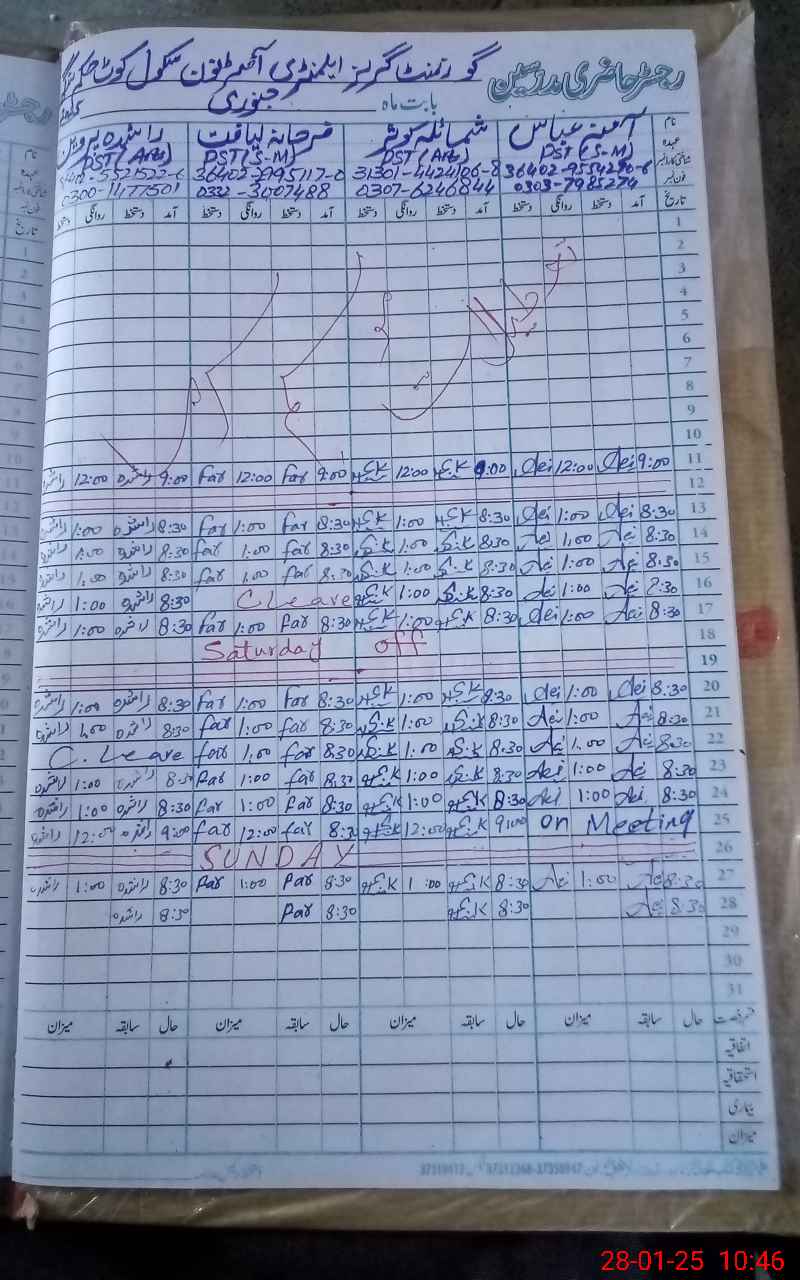 رجسٹر حاضری مدرسین
گورنمنٹ گرلز ایلیمنٹری سکول کوٹ
بابت ماہ جنوری
نام آمنہ عباس شمائلہ کوثر فرحانہ لیاقت راشدہ پروین
عہدہ PST (S-M) PST (Arts) PST (S-M) PST (Arts)
31301-4424186-8
0303-7985274 0307-6246844 0332-3007488 0300-1477501
تاریخ آمد دستخط روانگی دستخط آمد دستخط روانگی دستخط آمد دستخط روانگی دستخط آمد دستخط روانگی دستخط
1
2
3
4
5
6
7
8
9
10
11 9:00 Aei 12:00 Aei 9:00 S.K 12:00 S.K 9:00 far 12:00 far 9:00 راشدہ 12:00 راشدہ
12
13 8:30 Aei 1:00 Aei 8:30 S.K 1:00 S.K 8:30 far 1:00 far 8:30 راشدہ 1:00 راشدہ
14 8:30 Aei 1:00 Aei 8:30 S.K 1:00 S.K 8:30 far 1:00 far 8:30 راشدہ 1:00 راشدہ
15 8:30 Aei 1:00 Aei 8:30 S.K 1:00 S.K 8:30 far 1:00 far 8:30 راشدہ 1:00 راشدہ
16 8:30 Aei 1:00 Aei 8:30 S.K 1:00 S.K C Leave 8:30 راشدہ 1:00 راشدہ
17 8:30 Aei 1:00 Aei 8:30 S.K 1:00 S.K 8:30 far 1:00 far 8:30 راشدہ 1:00 راشدہ
18 Saturday off
19
20 8:30 Aei 1:00 Aei 8:30 S.K 1:00 S.K 8:30 far 1:00 far 8:30 راشدہ 1:00 راشدہ
21 8:30 Aei 1:00 Aei 8:30 S.K 1:00 S.K 8:30 far 1:00 far 8:30 راشدہ 1:00 راشدہ
22 8:30 Aei 1:00 Aei 8:30 S.K 1:00 S.K 8:30 far 1:00 far C. Leave
23 8:30 Aei 1:00 Aei 8:30 S.K 1:00 S.K 8:30 far 1:00 far 8:30 راشدہ 1:00 راشدہ
24 8:30 Aei 1:00 Aei 8:30 S.K 1:00 S.K 8:30 far 1:00 far 8:30 راشدہ 1:00 راشدہ
25 on Meeting 9:00 S.K 12:00 S.K 8:30 far 12:00 far 9:00 راشدہ 12:00 راشدہ
26 SUNDAY
27 8:30 Aei 1:00 Aei 8:30 S.K 1:00 S.K 8:30 far 1:00 far 8:30 راشدہ 1:00 راشدہ
28 8:30 Aei 8:30 S.K 8:30 far 8:30 راشدہ
29
30
31
قسم رخصت حال سابقہ میزان حال سابقہ میزان حال سابقہ میزان حال سابقہ میزان
اتفاقیہ
استحقاقیہ
بیماری
میزان
28-01-25 10:46